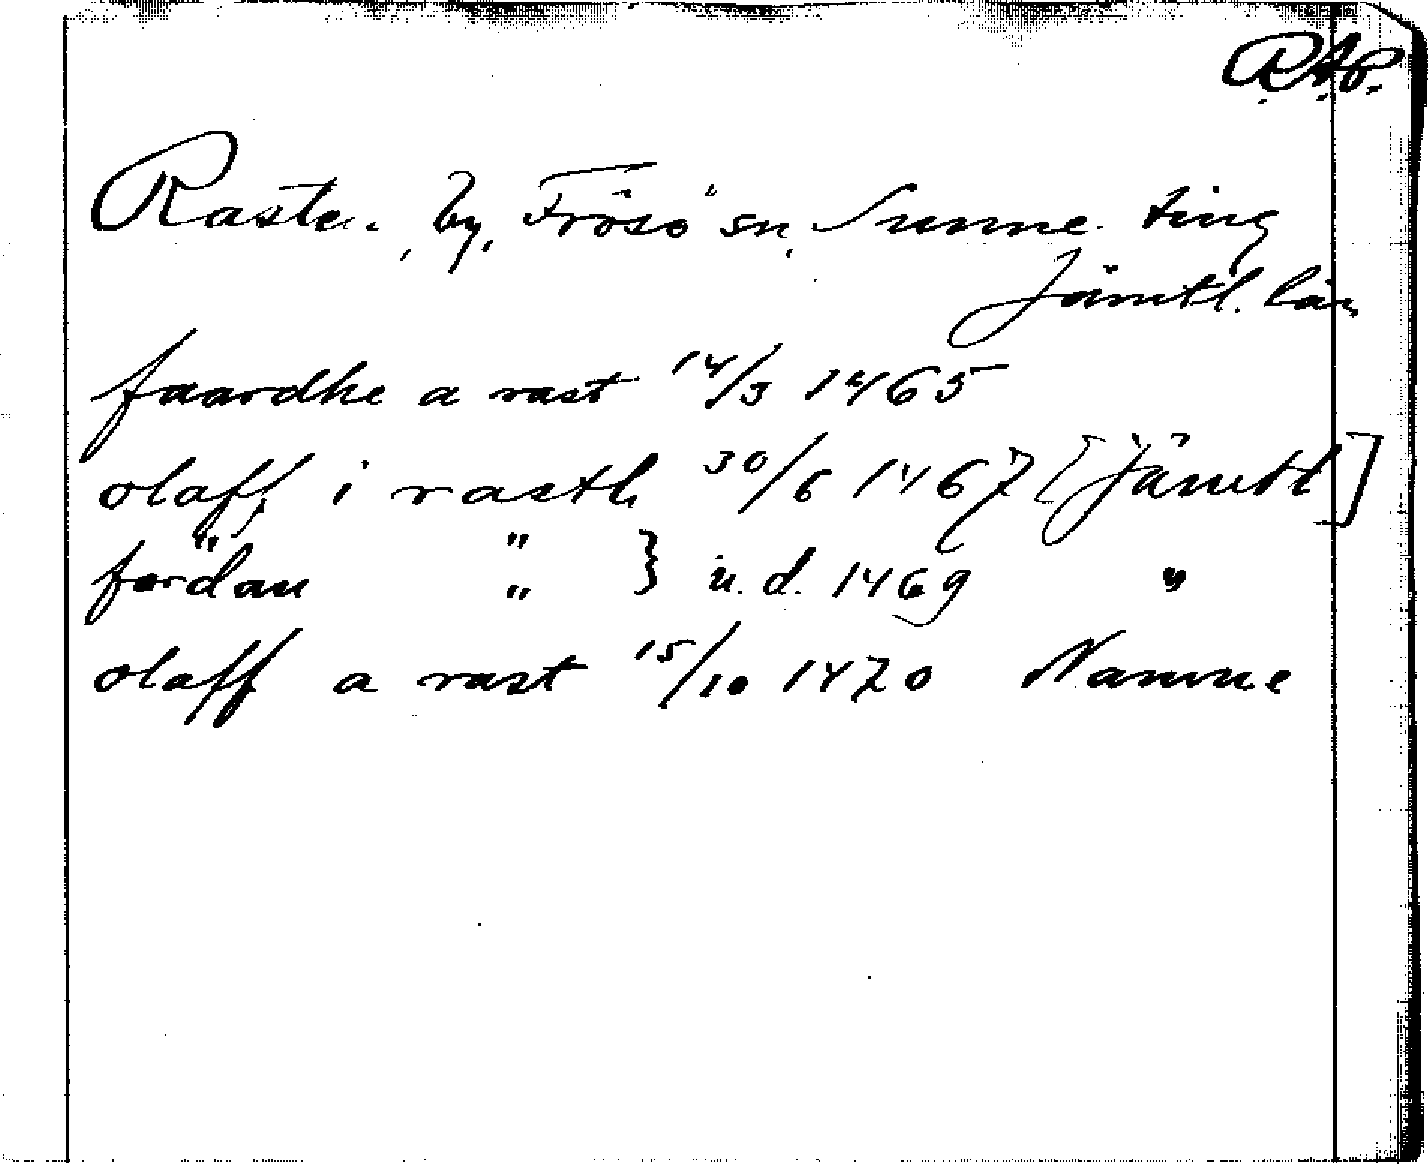 R.A.P.
Raste, by, Frösö sn, Sunne ting
Jämtl. län
faardhe a rast 14/3 1465
olaff i rasth 30/6 1467 [Jämtl]
" " } u.d. 1469 "
fordan "
olaff a rast 15/10 1470 Namne